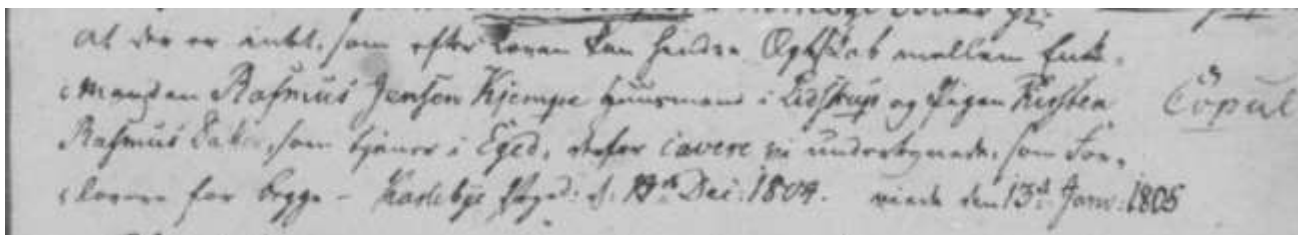 at der er intet, som efter Loven kan hindre Ægteskab mellem Enke-
manden Rasmus Jensen Kjempe Huusmand i Lidstrup og Pigen Kirsten Copul
Rasmus Datter, som tjener i Eged, derfor cavere vi undertegnede, som For-
lovere for begge - d. Dec: 1804. viede den 13de Janv: 1805